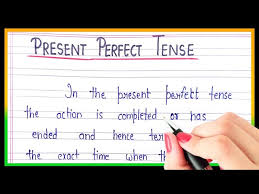 PRESENT PERFECT TENSE
In the present perfect tense
the action is completed or has
ended and hence ter
the exact time when th